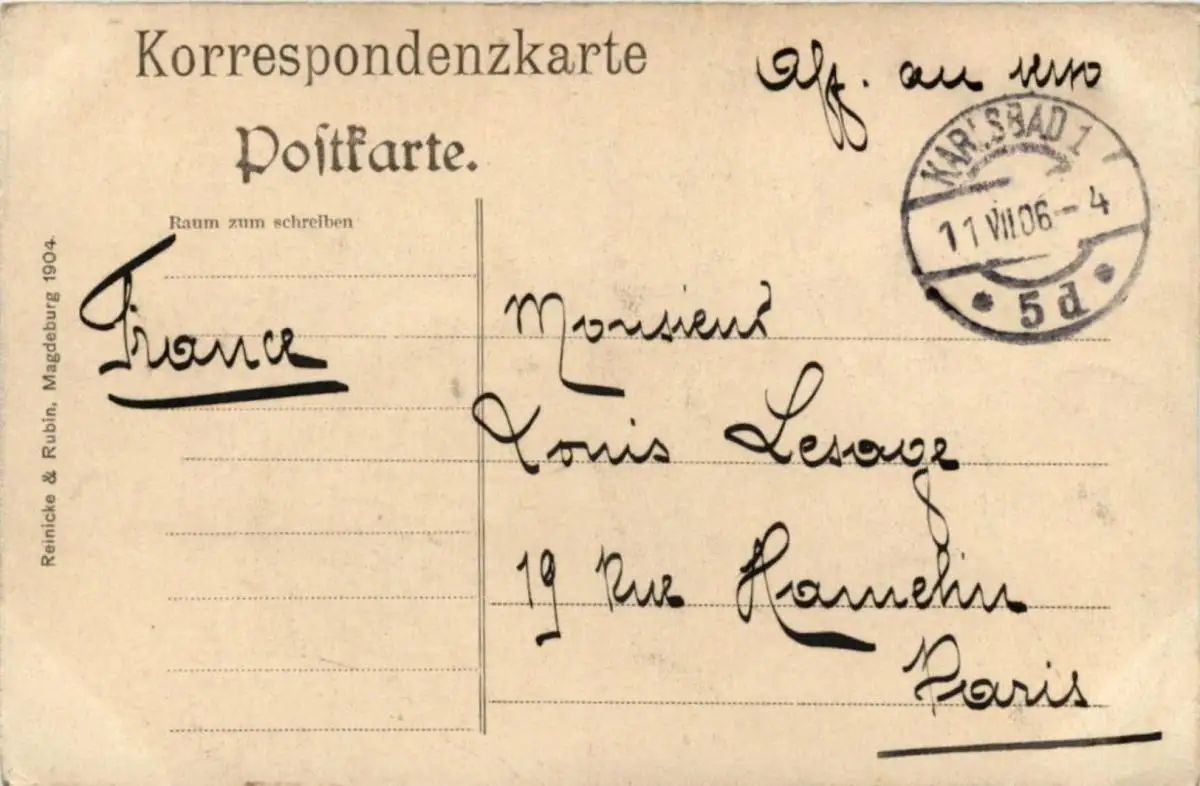 Korrespondenzkarte
Postkarte.
Raum zum schreiben
Reinicke & Rubin, Magdeburg 1904.
Aff. au verso
KARLSBAD 1
11 VII 06 - 4
5d
France
Monsieur
Louis Lesage
19 Rue Hamelin
Paris